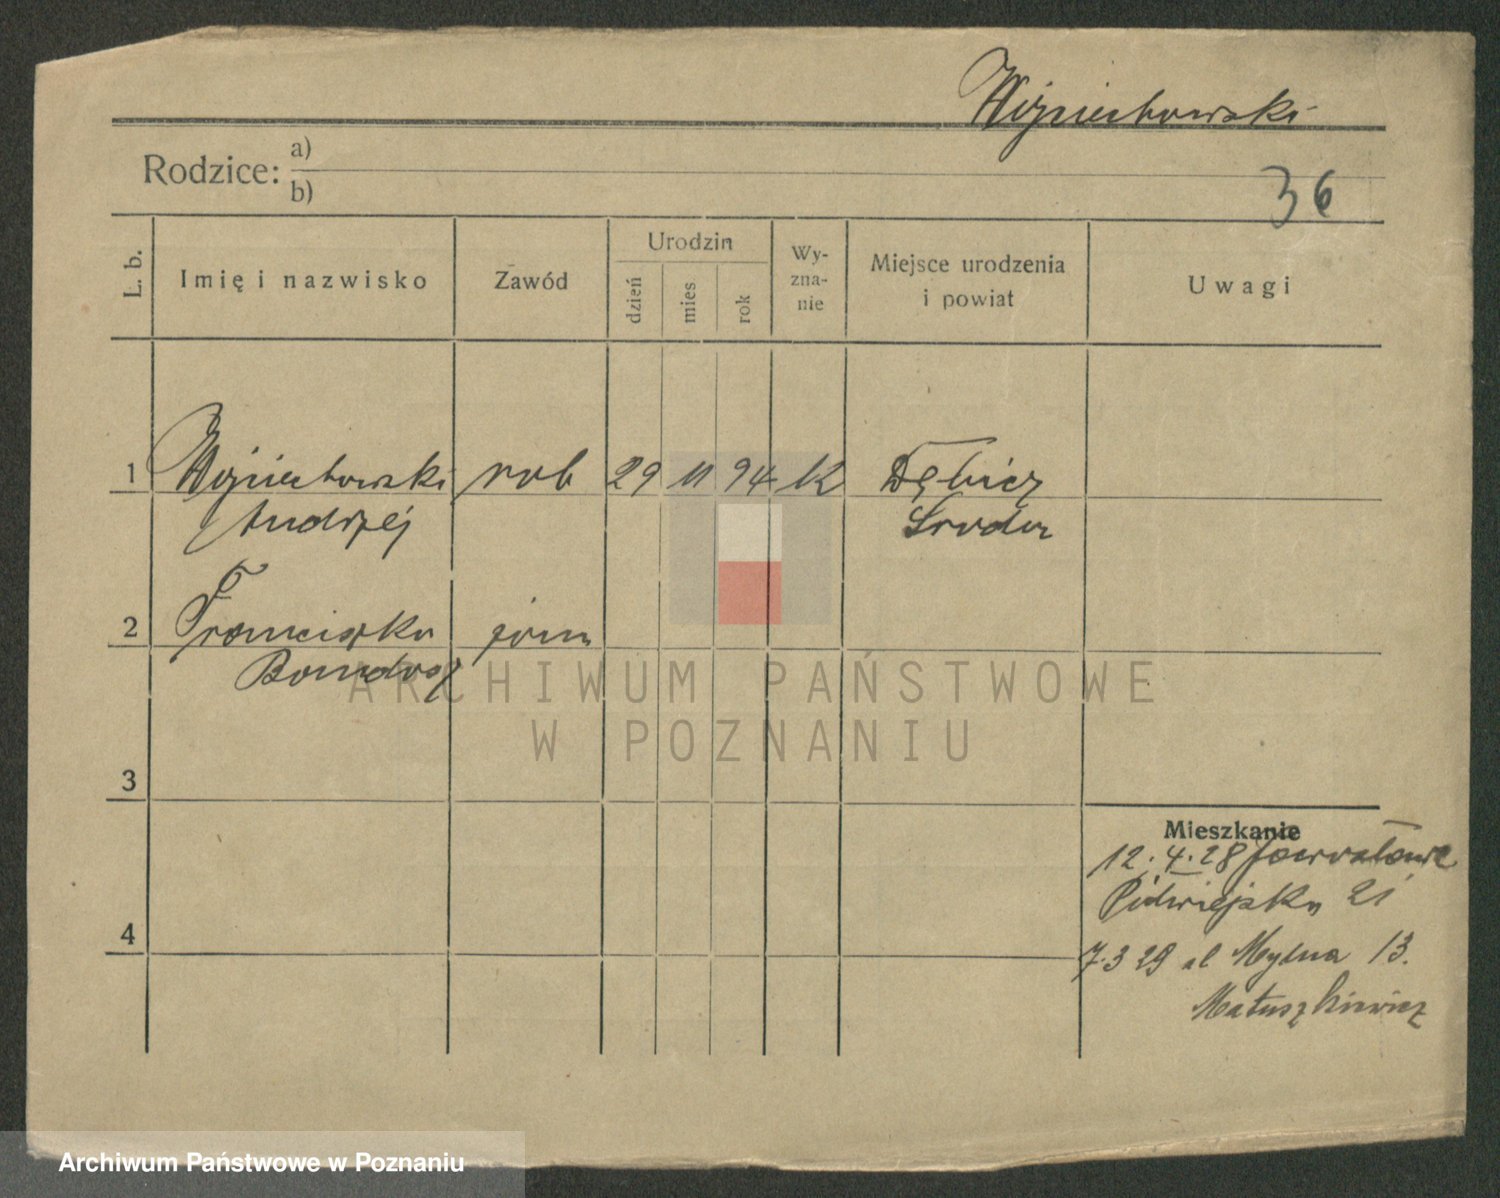 Wojciechowski
36
Rodzice: a)
b)
L. b.
Imię i nazwisko
Zawód
Urodzin
dzień
mies
rok
Wy-
zna-
nie
Miejsce urodzenia
i powiat
Uwagi
1 Wojciechowski rob 29 11 94 K Dębicz
Andrzej Środa
2 Franciszka żona
3
4
Mieszkanie
12.4.28
Półwiejska 21
7.3 29 ul Młyńska 13.
Matuszkiewicz
ARCHIWUM PAŃSTWOWE
W POZNANIU
Archiwum Państwowe w Poznaniu